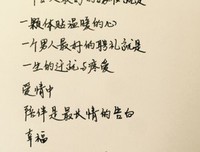 一颗体贴温暖的心
一个男人最好的聘礼就是
一生的迁就与疼爱
爱情中
陪伴是最长情的告白
幸福